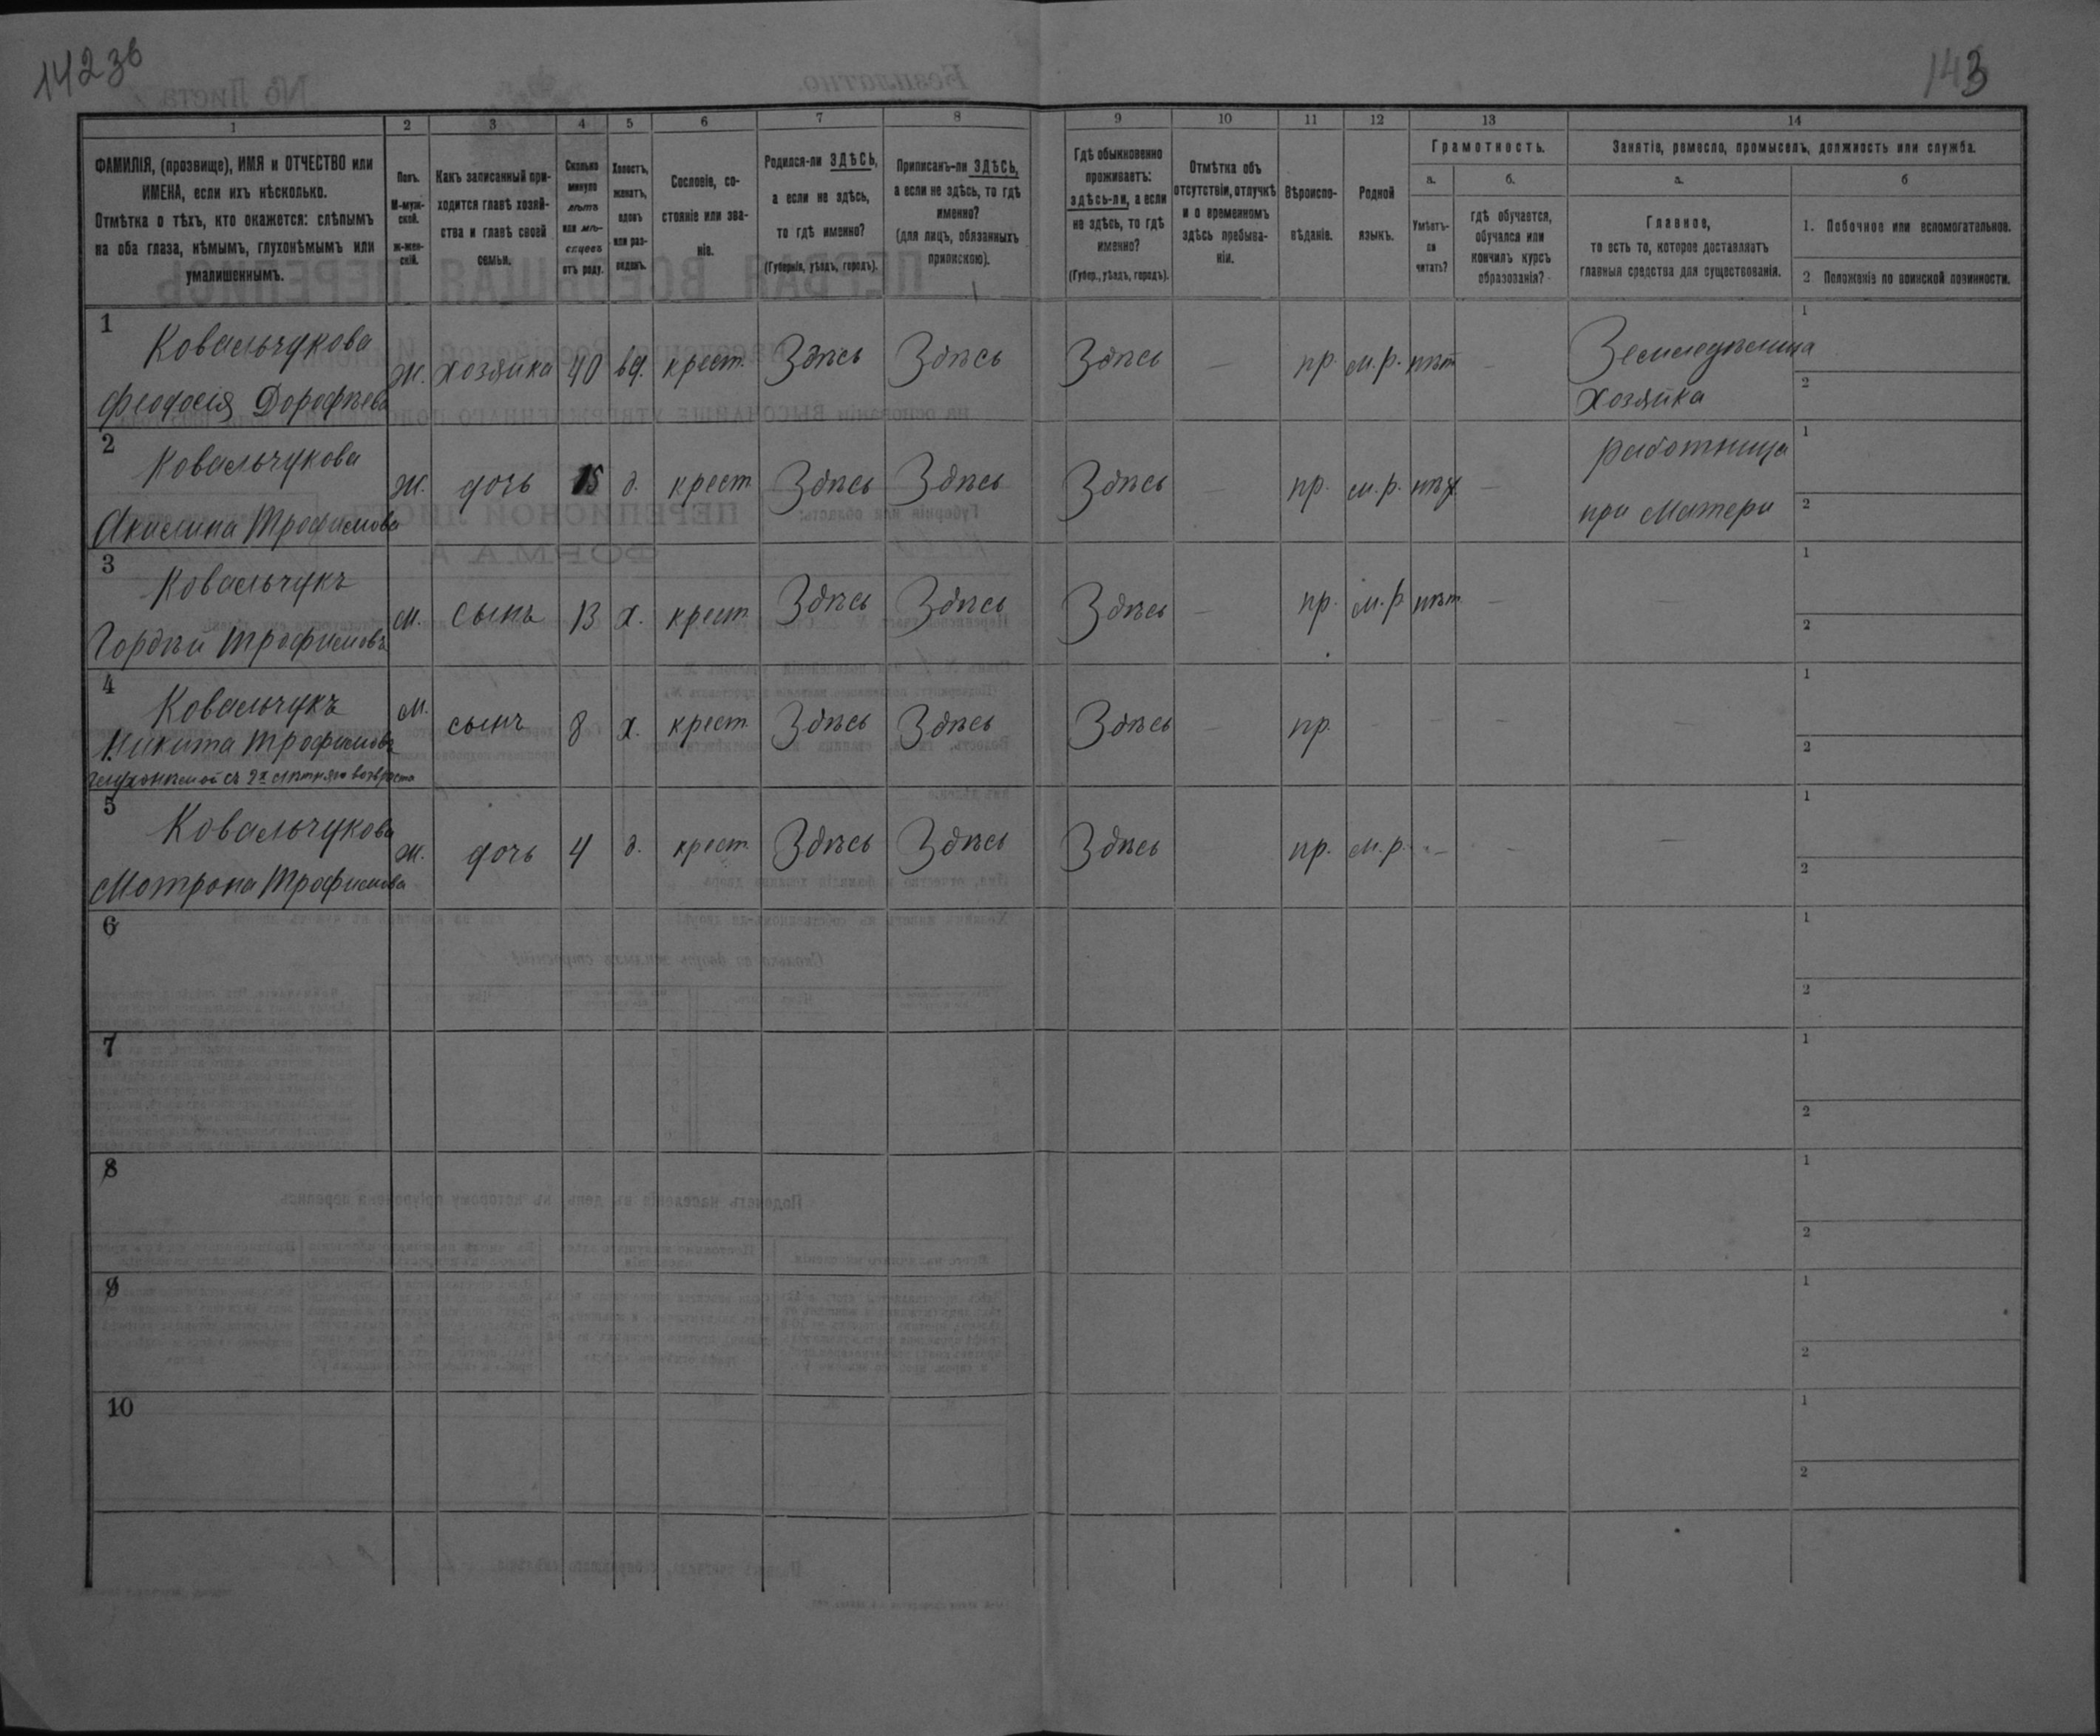 142 зв
143
1
2
3
4
5
6
7
8
9
10
11
12
13
14
ФАМИЛІЯ, (прозвище), ИМЯ и ОТЧЕСТВО или
ИМЕНА, если ихъ нѣсколько.
Отмѣтка о тѣхъ, кто окажется: слѣпымъ
на оба глаза, нѣмымъ, глухонѣмымъ или
умалишеннымъ.
Полъ.
М-муж-
ской.
ж-жен-
скій.
Какъ записанный при-
ходится главѣ хозяй-
ства и главѣ своей
семьи.
Сколько
минуло
лѣтъ
или мѣ-
сяцевъ
отъ роду.
Холостъ,
женатъ,
вдовъ
или раз-
веденъ.
Сословіе, со-
стояніе или зва-
ніе.
Родился-ли ЗДѢСЬ,
а если не здѣсь,
то гдѣ именно?
(Губернія, уѣздъ, городъ).
Приписанъ-ли ЗДѢСЬ,
а если не здѣсь, то гдѣ
именно?
(для лицъ, обязанныхъ
припискою).
Гдѣ обыкновенно
проживаетъ:
здѣсь-ли, а если
не здѣсь, то гдѣ
именно?
(Губер., уѣздъ, городъ).
Отмѣтка объ
отсутствіи, отлучкѣ
и о временномъ
здѣсь пребыва-
ніи.
Вѣроиспо-
вѣданіе.
Родной
языкъ.
Грамотность.
а.
б.
Умѣетъ-
ли
читать?
гдѣ обучается,
обучался или
кончилъ курсъ
образованія?
Занятіе, ремесло, промыселъ, должность или служба.
а.
б
Главное,
то есть то, которое доставляетъ
главныя средства для существованія.
1. Побочное или вспомогательное.
2 Положеніе по воинской повинности.
1 Ковальчукова
Феодосія Дорофѣева
ж. хозяйка 40 вд. крест. Здѣсь Здѣсь Здѣсь — пр. м.р. нѣт —
Земледѣлица
Хозяйка
1
2
2 Ковальчукова
Акилина Трофимова
ж. дочь 15 д. крест Здѣсь Здѣсь Здѣсь — пр. м.р. нѣт —
работница
при матери
1
2
3 Ковальчукъ
Гордѣй Трофимовъ
м. сынъ 13 х. крест Здѣсь Здѣсь Здѣсь — пр. м.р нѣт — —
1
2
4 Ковальчукъ
Никита Трофимовъ
глухонѣмой съ 2х лѣтняго возраста
м. сынъ 8 х. крест Здѣсь Здѣсь Здѣсь — пр. — — — —
1
2
5 Ковальчукова
Мотрона Трофимова
ж. дочь 4 д. крест Здѣсь Здѣсь Здѣсь пр. м.р. — — —
1
2
6
1
2
7
1
2
8
1
2
9
1
2
10
1
2